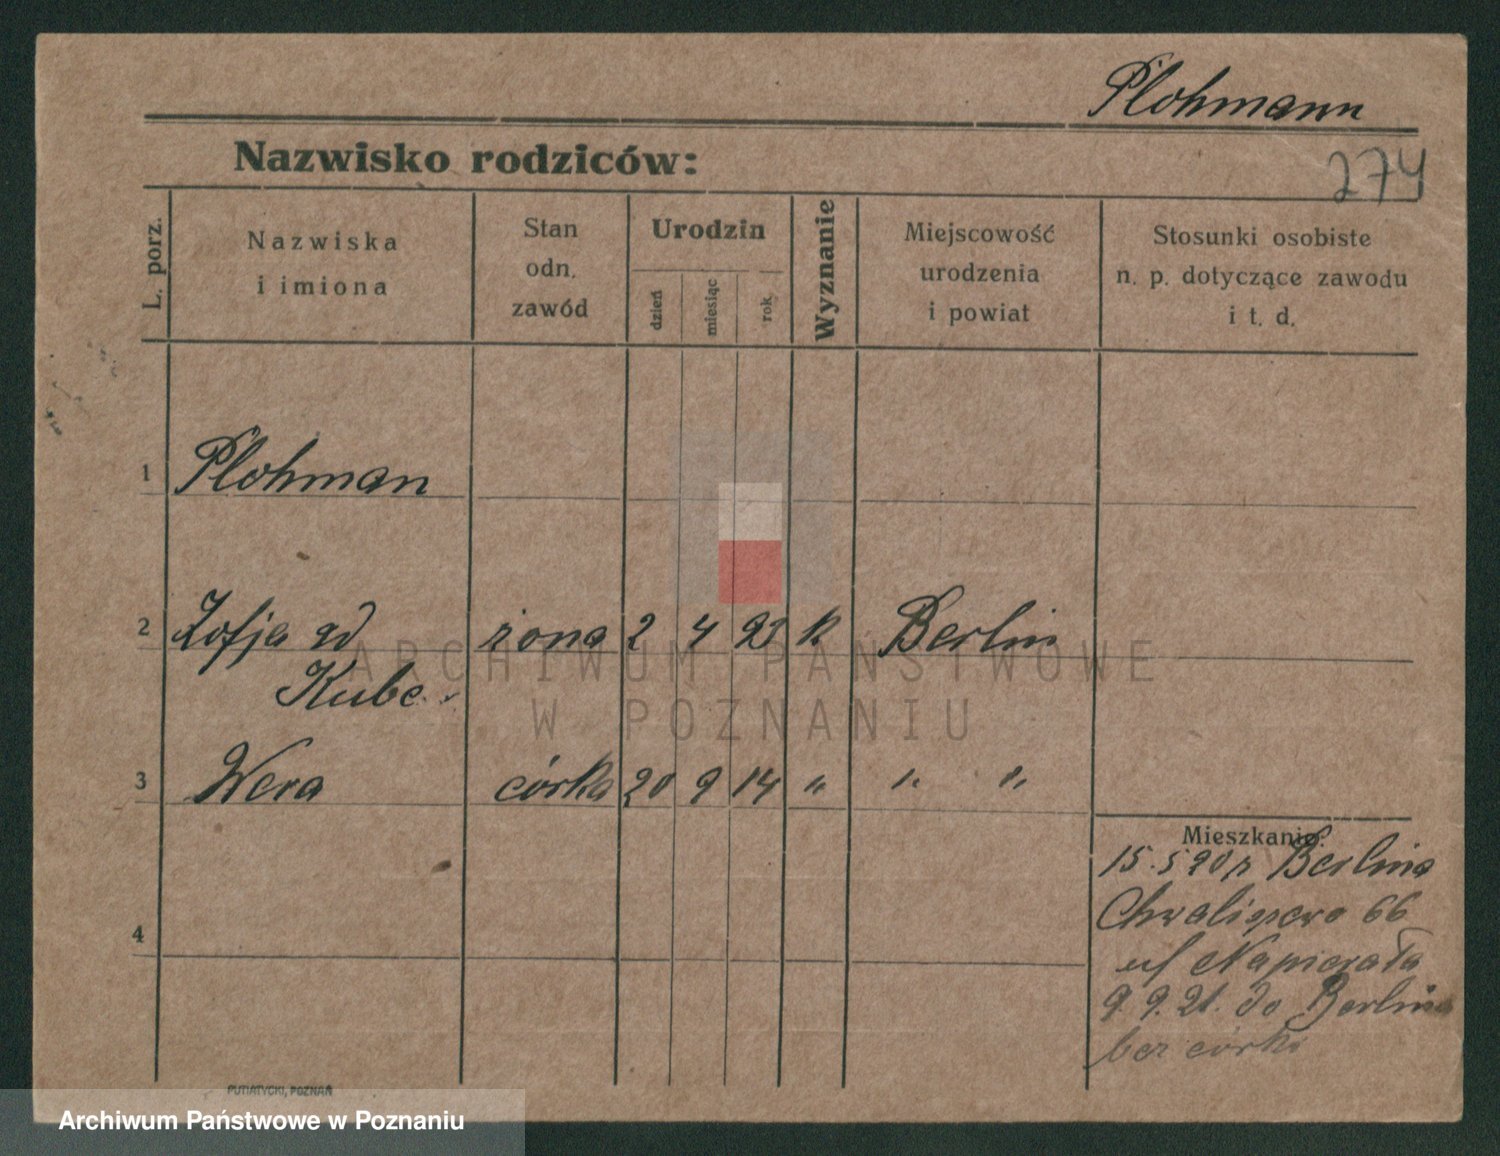 Plohmann
Nazwisko rodziców:
274
L. porz.
Nazwiska
i imiona
Stan
odn.
zawód
Urodzin
dzień
miesiąc
rok
Wyznanie
Miejscowość
urodzenia
i powiat
Stosunki osobiste
n. p. dotyczące zawodu
i t. d.
1 Plohman
2 Zofja żona 2 4 k Berlin
Kube
3 Wera córka 20 9 14 " " "
Mieszkanie:
15.5 20 z Berlina
66
Napierała
9.9.21. do Berlina
bez córki
4
PUTIATYCKI, POZNAŃ
ARCHIWUM PAŃSTWOWE
W POZNANIU
Archiwum Państwowe w Poznaniu